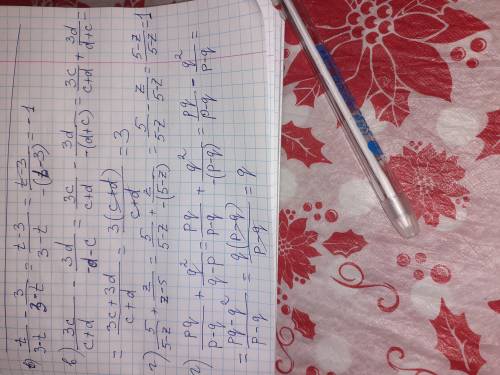 б) t/(3-t) - 3/(3-t) = (t-3)/(3-t) = (t-3)/(-(t-3)) = -1
в) 3c/(c+d) - 3d/(d-c) = 3c/(c+d) - 3d/(-(d+c)) = 3c/(c+d) + 3d/(d+c) =
= (3c+3d)/(c+d) = 3(c+d)/(c+d) = 3
г) 5/(5-z) + z/(z-5) = 5/(5-z) + z/(-(5-z)) = 5/(5-z) - z/(5-z) = (5-z)/(5-z) = 1
г) pq/(p-q) + q²/(q-p) = pq/(p-q) + q²/(-(p-q)) = pq/(p-q) - q²/(p-q) =
= (pq-q²)/(p-q) = q(p-q)/(p-q) = q